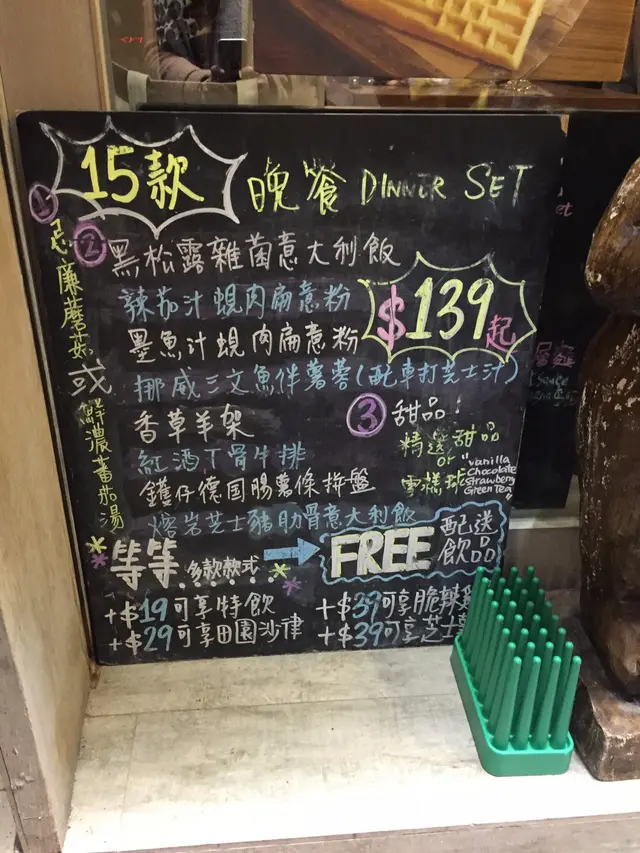 15款 晚餐 DINNER SET
①
忌廉蘑菇
或
鮮濃蕃茄湯
② 黑松露雜菌意大利飯
辣茄汁蜆肉扁意粉
墨魚汁蜆肉扁意粉
$139起
挪威三文魚伴薯蓉(配車打芝士汁)
香草羊架
紅酒T骨牛排
鑊仔德国腸薯條拼盤
熔岩芝士豬肋骨意大利飯
③ 甜品:
精選甜品
or
雪糕球
"vanilla
Chocolate
Strawberry
Green Tea
等等 多款款式......
FREE 配送飲品
+$19可享特飲
+$29可享田園沙律
+$39可享脆辣雞
+$39可享芝士